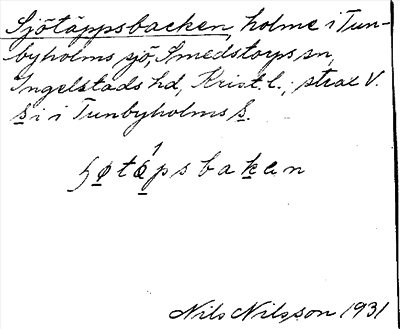 Sjötäppsbacken, holme i Tun-
byholms sjö, Smedstorps sn,
Ingelstads hd, Krist. l.; strax V.
S i i Tunbyholms S.
1
Nils Nilsson 1931